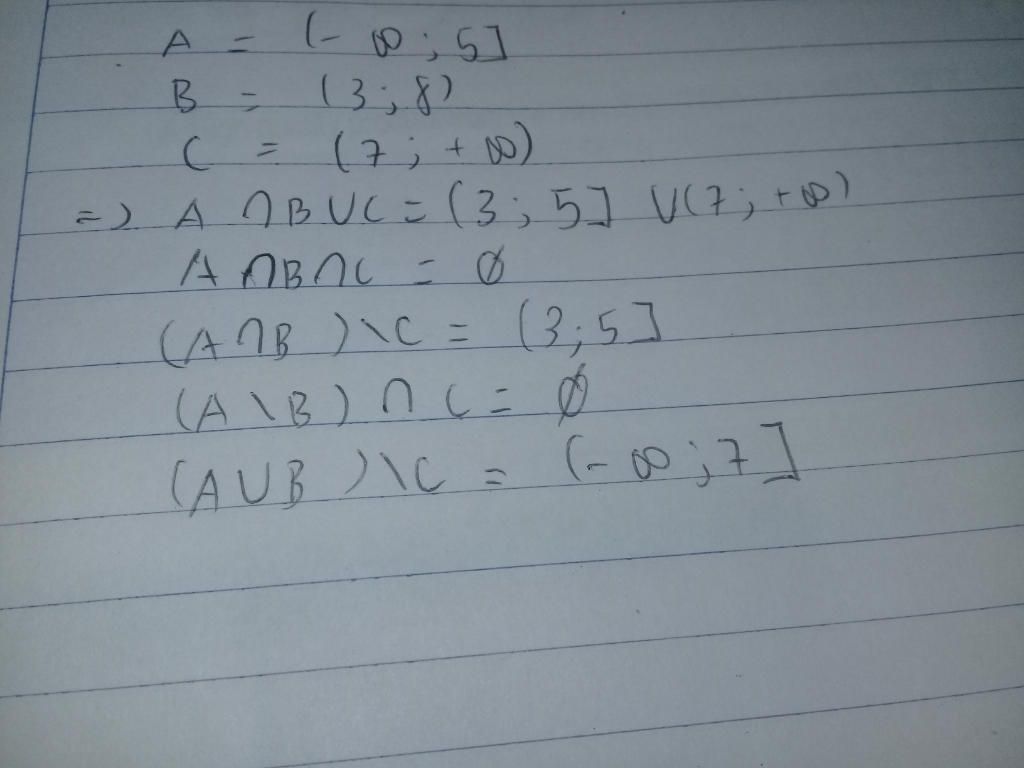 A = (- ∞ ; 5]
B = (3 ; 8)
C = (7 ; + ∞)
=> A ∩ B ∪ C = (3 ; 5] ∪ (7 ; + ∞)
A ∩ B ∩ C = ∅
(A ∩ B ) \ C = (3 ; 5]
(A \ B) ∩ C = ∅
(A ∪ B ) \ C = (- ∞ ; 7]